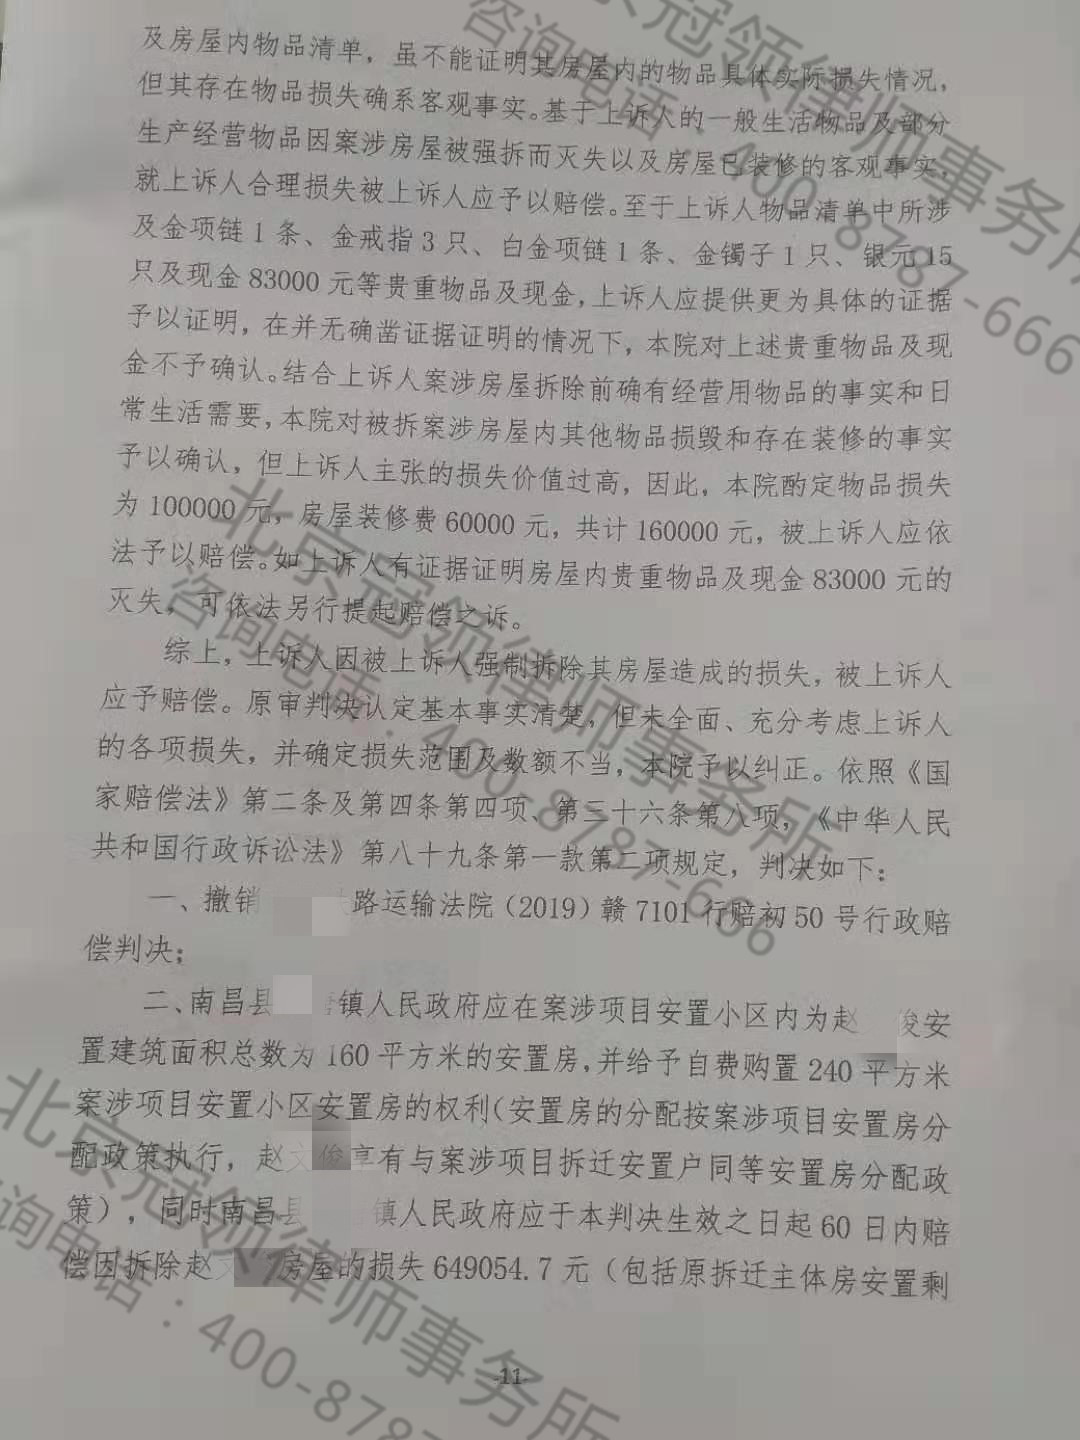 及房屋内物品清单，虽不能证明其房屋内的物品具体实际损失情况，
但其存在物品损失确系客观事实。基于上诉人的一般生活物品及部分
生产经营物品因案涉房屋被强拆而灭失以及房屋已装修的客观事实，
就上诉人合理损失被上诉人应予以赔偿。至于上诉人物品清单中所涉
及金项链1条、金戒指3只、白金项链1条、金镯子1只、银元15
只及现金83000元等贵重物品及现金，上诉人应提供更为具体的证据
予以证明，在并无确凿证据证明的情况下，本院对上述贵重物品及现
金不予确认。结合上诉人案涉房屋拆除前确有经营用物品的事实和日
常生活需要，本院对被拆案涉房屋内其他物品损毁和存在装修的事实
予以确认，但上诉人主张的损失价值过高，因此，本院酌定物品损失
为100000元，房屋装修费60000元，共计160000元，被上诉人应依
法予以赔偿。如上诉人有证据证明房屋内贵重物品及现金83000元的
灭失，可依法另行提起赔偿之诉。
综上，上诉人因被上诉人强制拆除其房屋造成的损失，被上诉人
应予赔偿。原审判决认定基本事实清楚，但未全面、充分考虑上诉人
的各项损失，并确定损失范围及数额不当，本院予以纠正。依照《国
家赔偿法》第二条及第四条第四项、第三十六条第八项，《中华人民
共和国行政诉讼法》第八十九条第一款第二项规定，判决如下：
一、撤销 路运输法院（2019）赣7101行赔初50号行政赔
偿判决；
二、南昌县 镇人民政府应在案涉项目安置小区内为赵 俊安
置建筑面积总数为160平方米的安置房，并给予自费购置240平方米
案涉项目安置小区安置房的权利（安置房的分配按案涉项目安置房分
配政策执行，赵文俊享有与案涉项目拆迁安置户同等安置房分配政
策），同时南昌县 镇人民政府应于本判决生效之日起60日内赔
偿因拆除赵 房屋的损失649054.7元（包括原拆迁主体房安置剩
-11-
北京冠领律师事务所
咨询电话：400-8787-666
北京冠领律师事务所
咨询电话：400-8787-666
北京冠领律师事务所
咨询电话：400-878